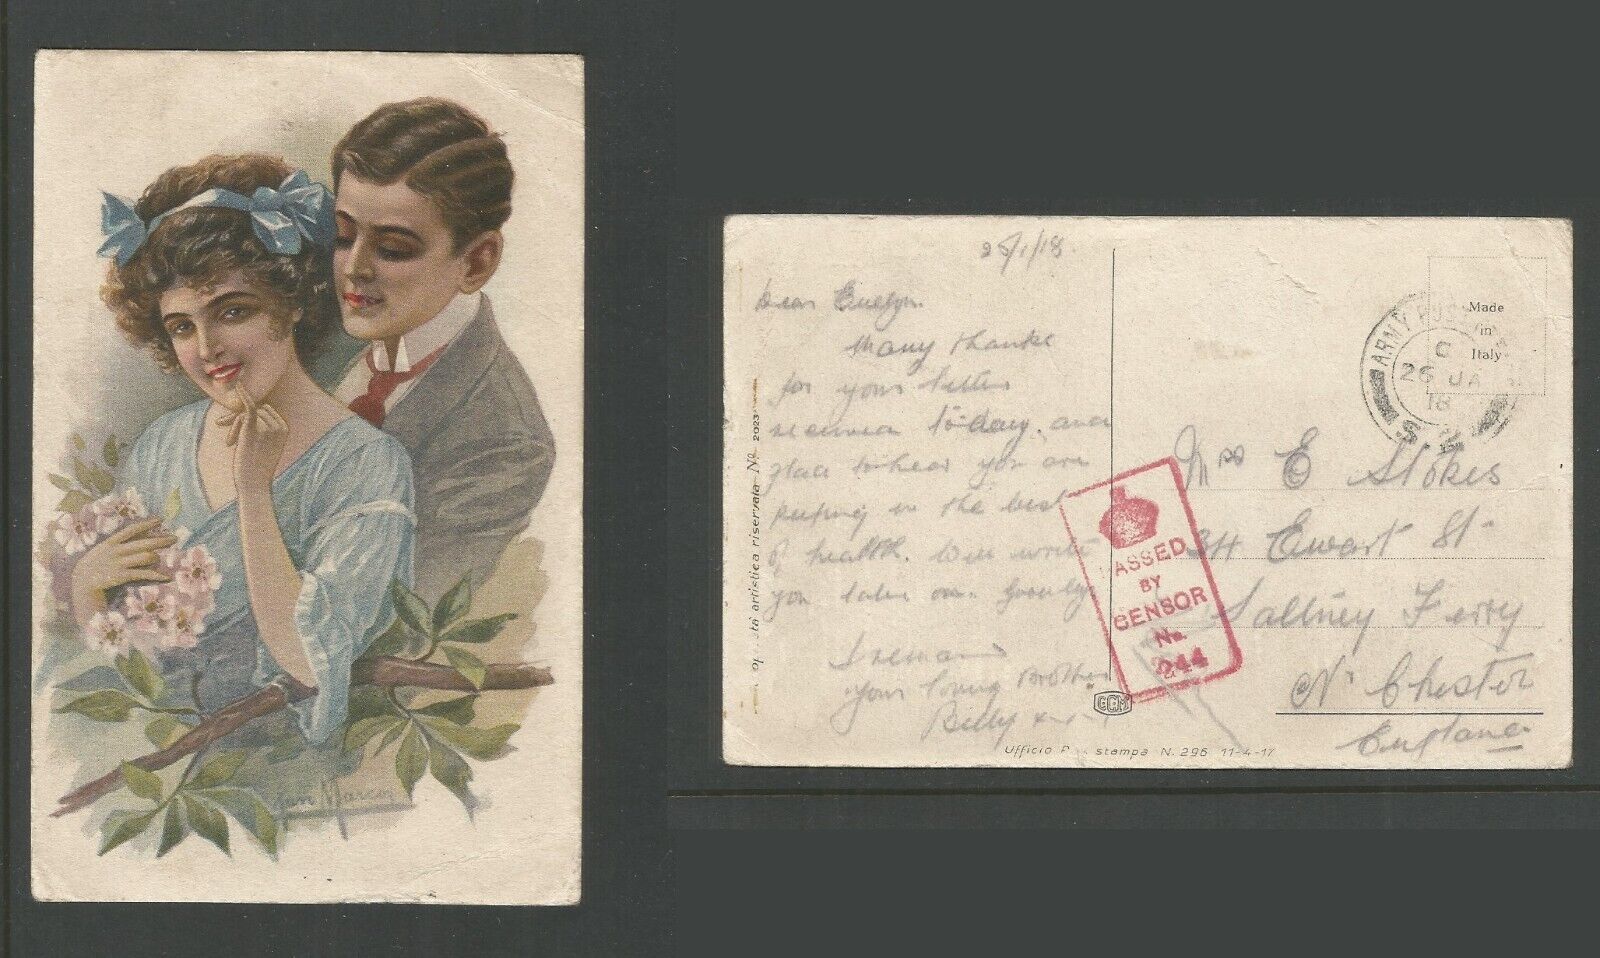 25/1/18
Dear Evelyn.
Many thanks
for your letter
received to-day. and
glad to hear you are
keeping in the best
of health. Will write
you later on.
I remain
your loving Brother
Billy x-x-x
artistica riservata № 2023
GCM
Ufficio stampa N. 296 11-4-17
Made
in
Italy
ARMY
26 JA
18
S.Z
Mrs E Stokes
34 Ewart St
Saltney Ferry
Nr Chester
England
PASSED
BY
CENSOR
No.
2244